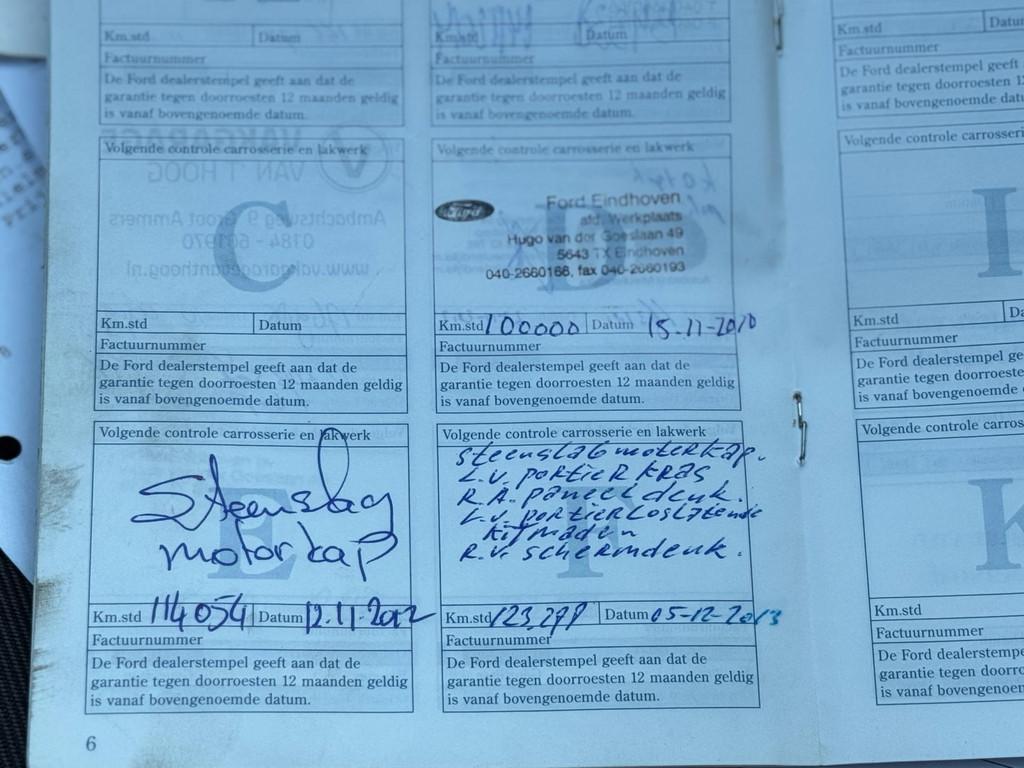 Km.std Datum
Factuurnummer
De Ford dealerstempel geeft aan dat de
garantie tegen doorroesten 12 maanden geldig
is vanaf bovengenoemde datum.
Km.std Datum
Factuurnummer
De Ford dealerstempel geeft aan dat de
garantie tegen doorroesten 12 maanden geldig
is vanaf bovengenoemde datum.
Volgende controle carrosserie en lakwerk
C
Km.std Datum
Factuurnummer
De Ford dealerstempel geeft aan dat de
garantie tegen doorroesten 12 maanden geldig
is vanaf bovengenoemde datum.
Volgende controle carrosserie en lakwerk
D
Ford
Ford Eindhoven
afd. Werkplaats
Hugo van der Goeslaan 49
5643 TX Eindhoven
040-2660166, fax 040-2660193
Km.std 100000 Datum 15-11-2010
Factuurnummer
De Ford dealerstempel geeft aan dat de
garantie tegen doorroesten 12 maanden geldig
is vanaf bovengenoemde datum.
Volgende controle carrosserie en lakwerk
E
Steenslag
motorkap
Km.std 114054 Datum 12.11.2012
Factuurnummer
De Ford dealerstempel geeft aan dat de
garantie tegen doorroesten 12 maanden geldig
is vanaf bovengenoemde datum.
Volgende controle carrosserie en lakwerk
F
steenslag moterkap.
L.V. portier kras
R.A. paneel deuk.
L.V. portier loslatende
kitnaden
R.V. schermdeuk.
Km.std Datum 05-12-2013
Factuurnummer
De Ford dealerstempel geeft aan dat de
garantie tegen doorroesten 12 maanden geldig
is vanaf bovengenoemde datum.
6
Km.std Datu
Factuurnummer
De Ford dealerstempel geeft
garantie tegen doorroesten
is vanaf bovengenoemde datu
Volgende controle carrosserie
I
Km.std Da
Factuurnummer
De Ford dealerstempel ge
garantie tegen doorroeste
is vanaf bovengenoemde
Volgende controle carros
K
Km.std
Factuurnummer
De Ford dealerstempe
garantie tegen doorro
is vanaf bovengenoen